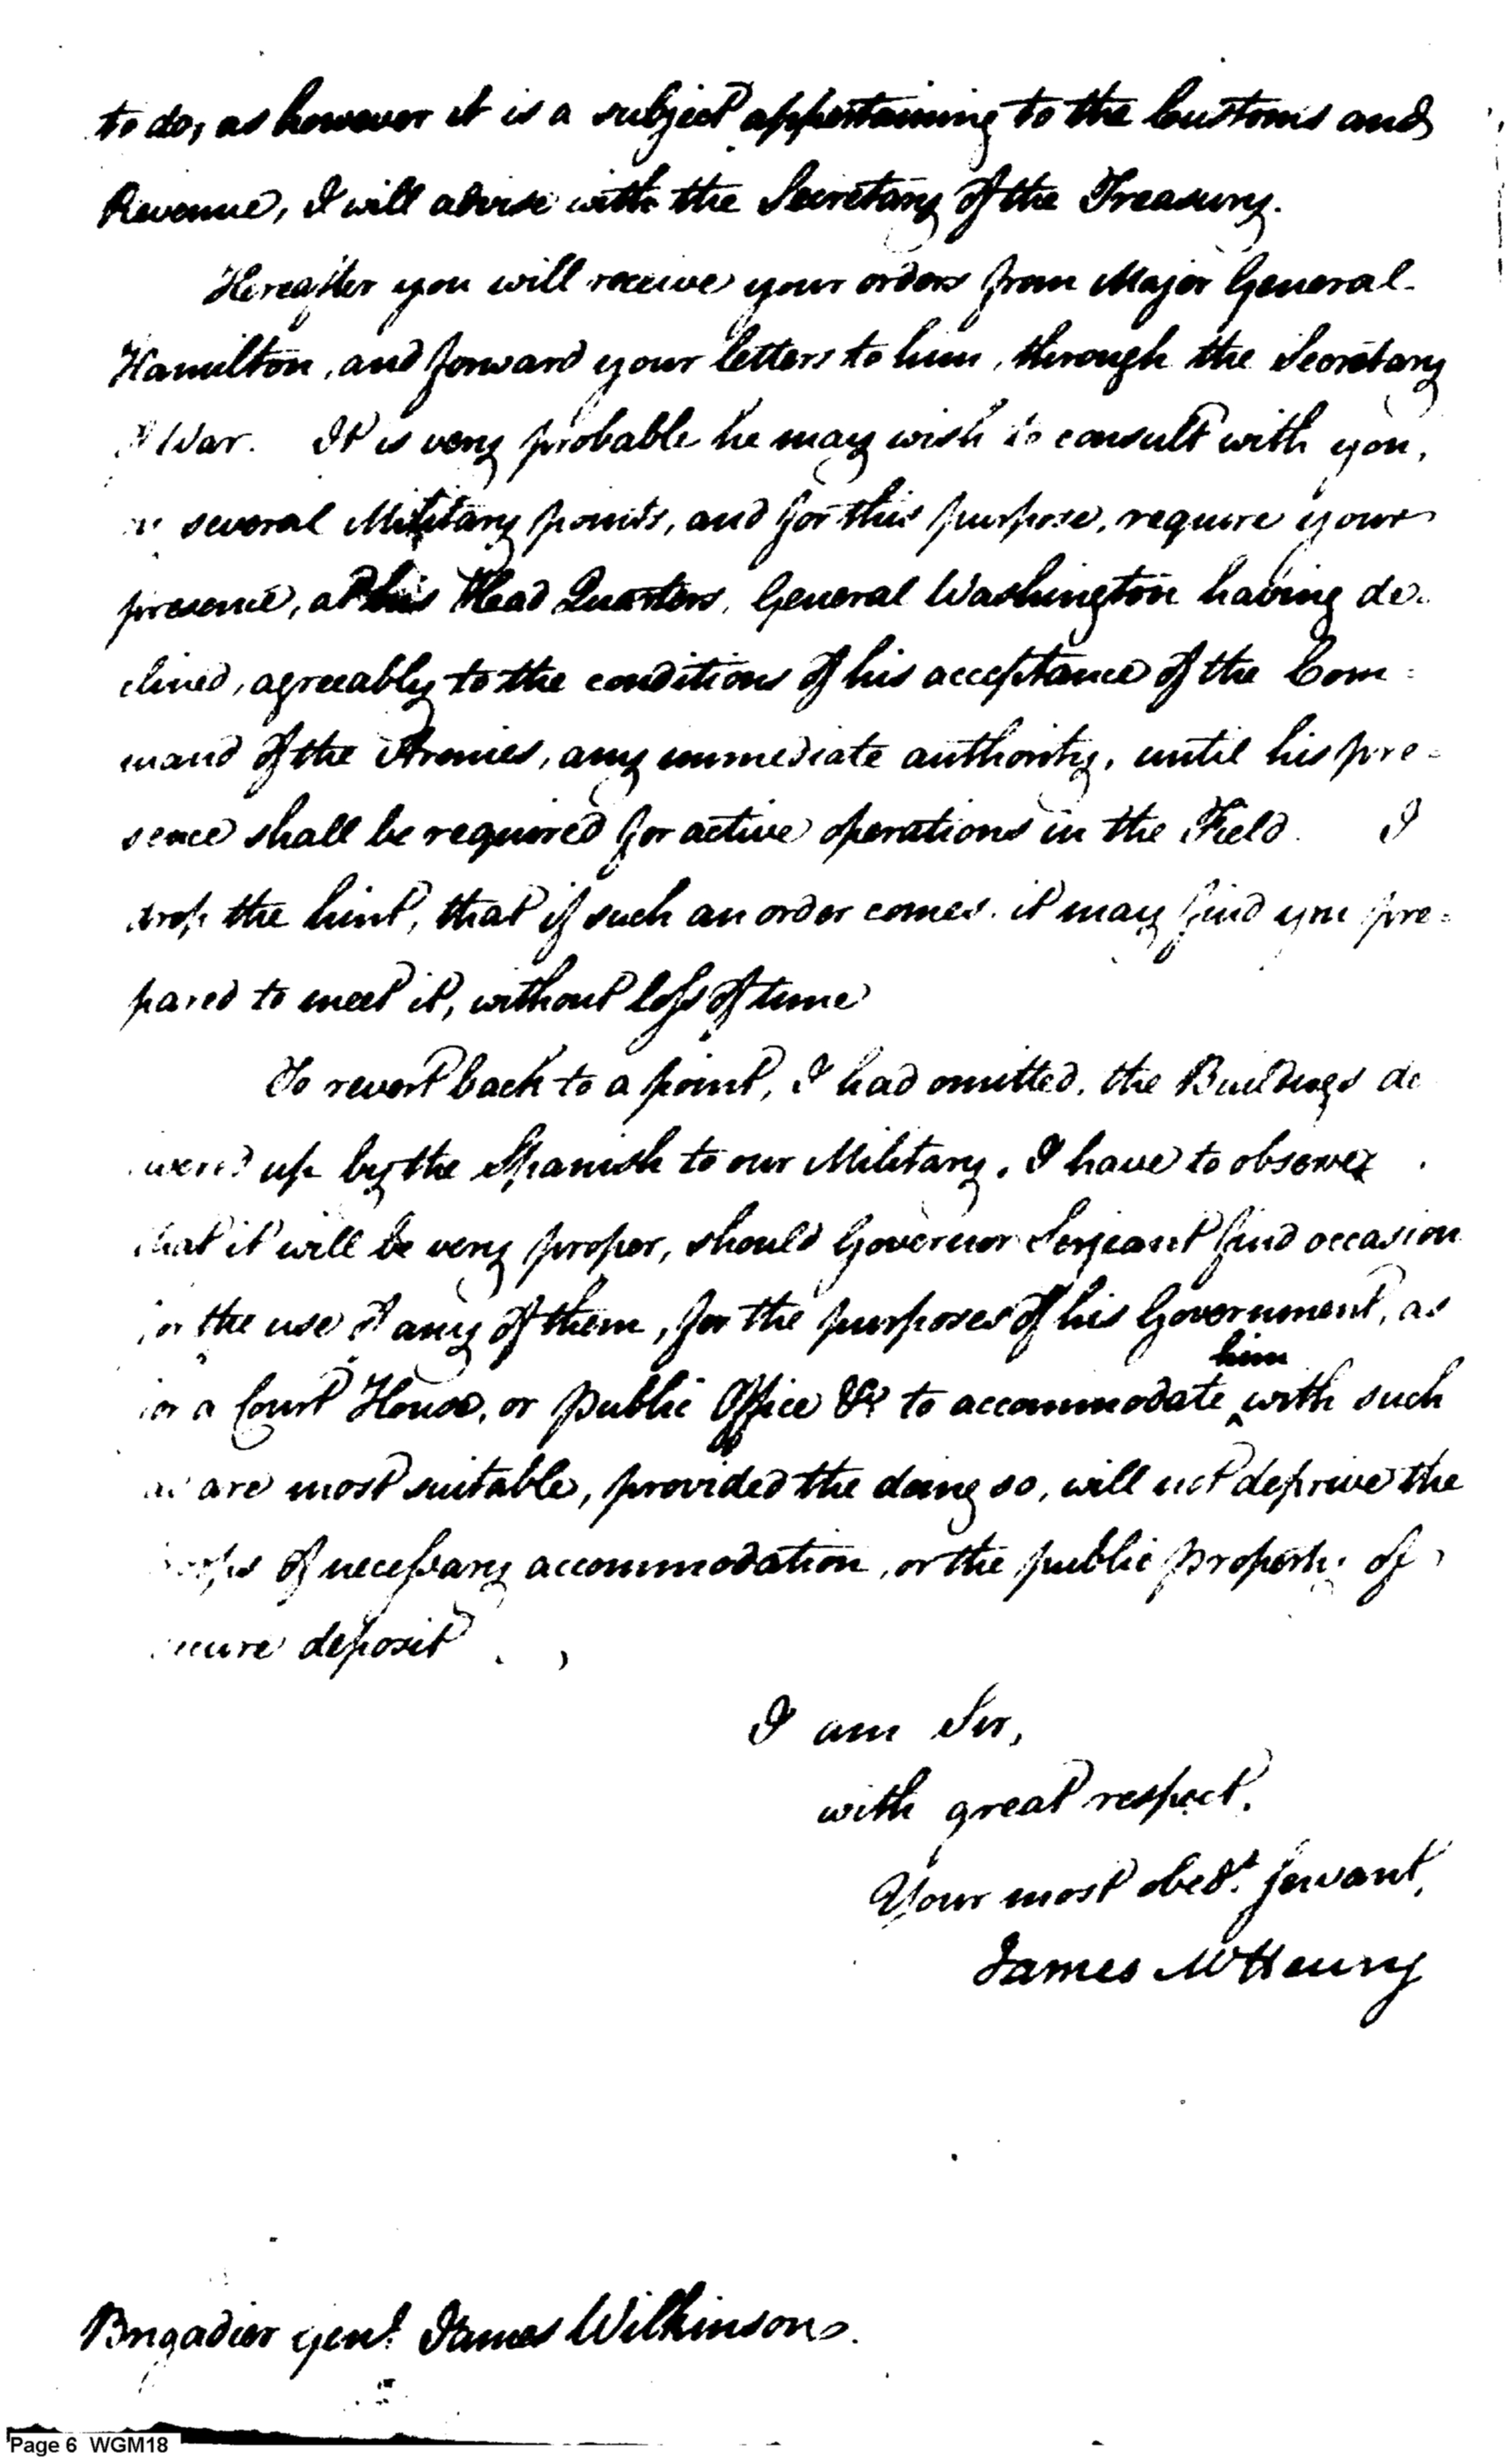 to do, as however it is a subject appertaining to the Customs and
Revenue, I will advise with the Secretary of the Treasury.
Hereafter you will receive your orders from Major General
Hamilton, and forward your letters to him, through the Secretary
War. It is very probable he may wish to consult with you,
several Military points, and for this purpose, require your
presence, at his Head Quarters, General Washington having de-
clined, agreeably to the conditions of his acceptance of the Com=
mand of the Armies, any immediate authority, until his pre=
sence shall be required for active operations in the Field. I
drop the hint, that if such an order comes, it may find you pre=
pared to meet it, without loss of time
To revert back to a point, I had omitted, the Buildings de
livered up by the Spanish to our Military, I have to observe
that it will be very proper, should Governor Serjeant find occasion
for the use of any of them, for the purposes of his Government, as
him
for a Court House, or public Office &c to accommodate ^ with such
as are most suitable, provided the doing so, will not deprive the
troops of necessary accommodation, or the public property of
secure deposit.
I am Sir,
with great respect,
Your most obedt. servant,
James McHenry
Brigadier Genl. James Wilkinson.
Page 6 WGM18